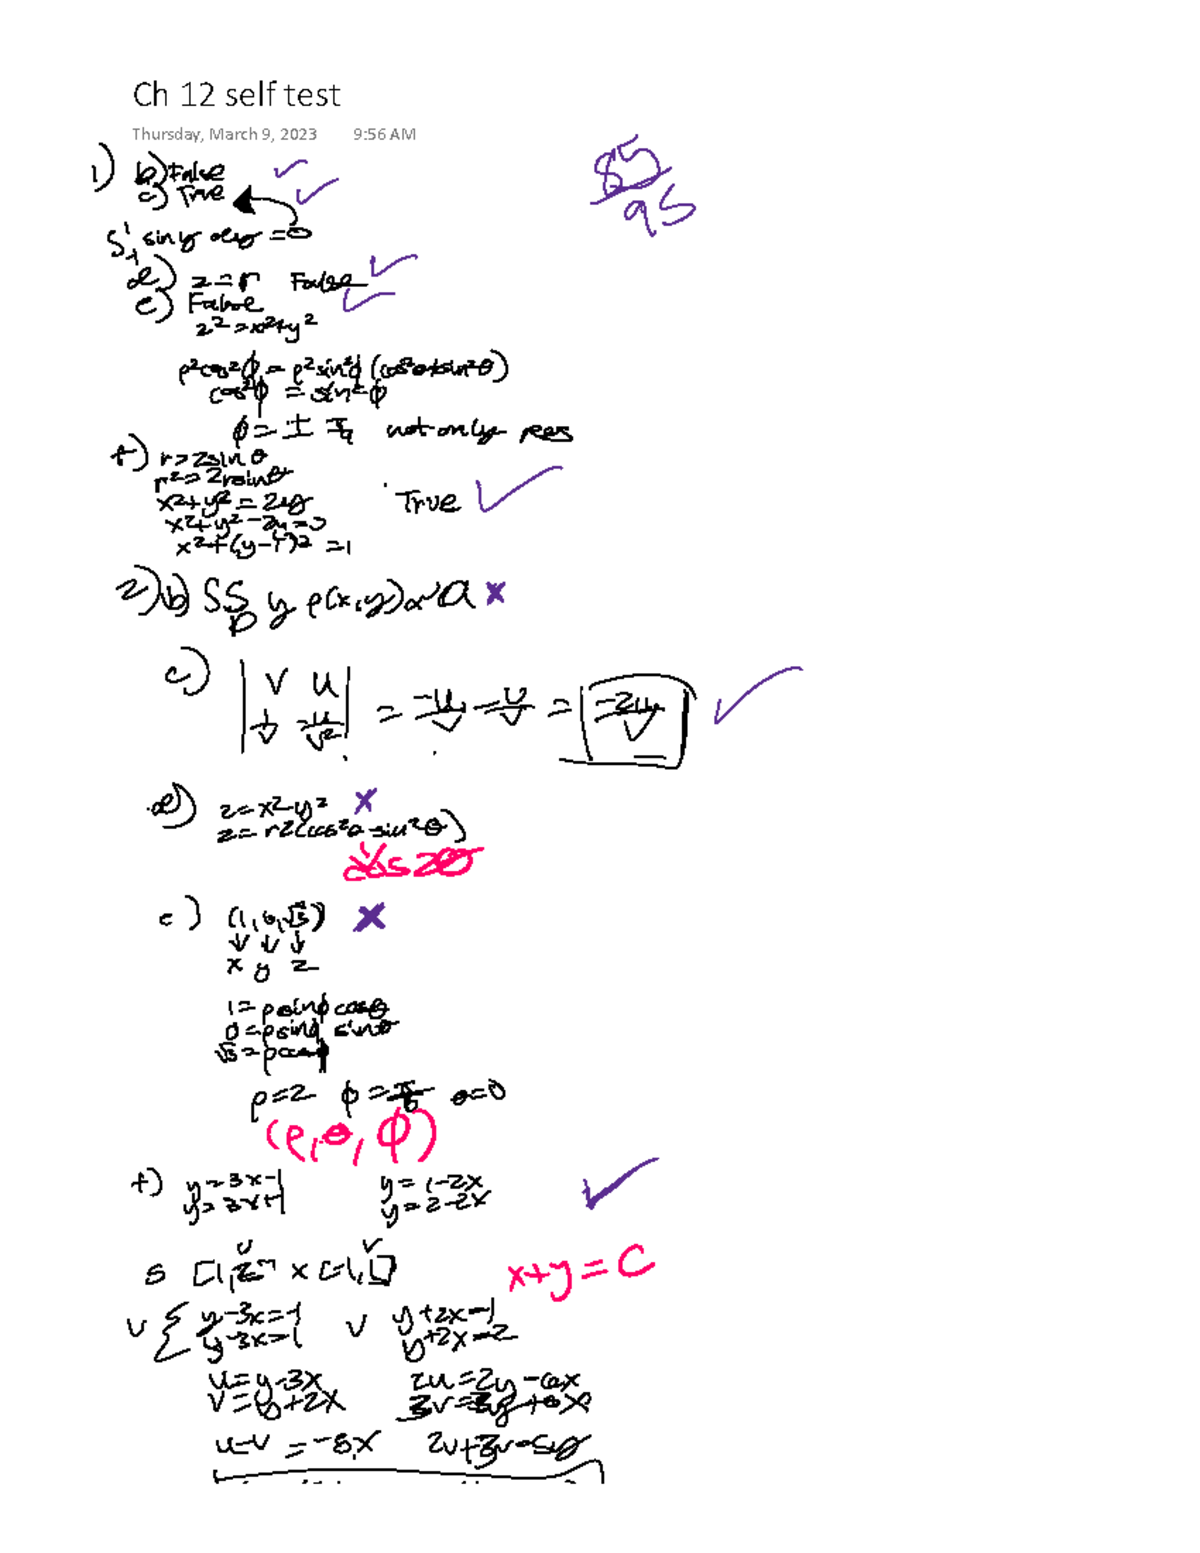 Ch 12 self test
Thursday, March 9, 2023 9:56 AM
85
95
1) b) False
c) True
S¹₋₁ sin y dy = 0
d) z = r False
e) False
z² = x² + y²
ρ²cos²ϕ = ρ²sin²ϕ (cos²θ + sin²θ)
cos²ϕ = sin²ϕ
ϕ = ± π/4 not only pos
f) r = 2sin θ
r² = 2r sin θ
x² + y² = 2y True
x² + y² - 2y = 0
x² + (y - 1)² = 1
2) b) SS_D y ρ(x,y) dA
c) | v u |
| 1/v -u/v² | = -u/v - u/v = -2u/v
d) z = x² - y²
z = r²(cos²θ - sin²θ)
cos 2θ
e) (1, 0, √3)
↓ ↓ ↓
x y z
1 = ρ sinϕ cosθ
0 = ρ sinϕ sinθ
√3 = ρ cosϕ
ρ = 2 ϕ = π/6 θ = 0
(ρ, θ, ϕ)
f) y = 3x - 1 y = 1 - 2x
y = 3x + 1 y = 2 - 2x
S [1, 2] x [-1, 1]
x + y = C
v { y - 3x = -1 v y + 2x = 1
y - 3x = 1 y + 2x = 2
u = y - 3x 2u = 2y - 6x
v = y + 2x 3v = 3y + 6x
u - v = -5x 2u + 3v = 5y